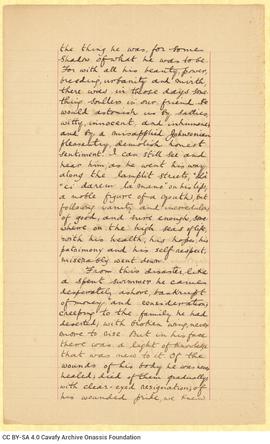 the thing he was, for some
shadow of what he was to be.
For with all his beauty, power,
breeding, urbanity and mirth,
there was in those days some
thing soulless in our friend. He
would astonish us by sallies,
witty, innocent, and inhumane
and by a misapplied Johnsonian
pleasantry, demolish honest
sentiment. I can still see and
hear him, as he went his way
along the lamplit streets, "Là
ci darem la mano" on his lips,
a noble figure of a youth, but
following vanity and incredulous
of good, and sure enough, some
where on the high seas of life,
with his health, his hopes, his
patrimony and his self-respect,
miserably went down.
From this disaster, like
a spent swimmer he came
desperately ashore, bankrupt
of money and consideration;
creeping to the family he had
deserted; with broken wing, never
more to rise. But in his face
there was a light of knowledge
that was new to it. Of the
wounds of his body he was never
healed; died of them gradually,
with clear-eyed resignation; of
his wounded pride, we knew
CC BY-SA 4.0 Cavafy Archive Onassis Foundation